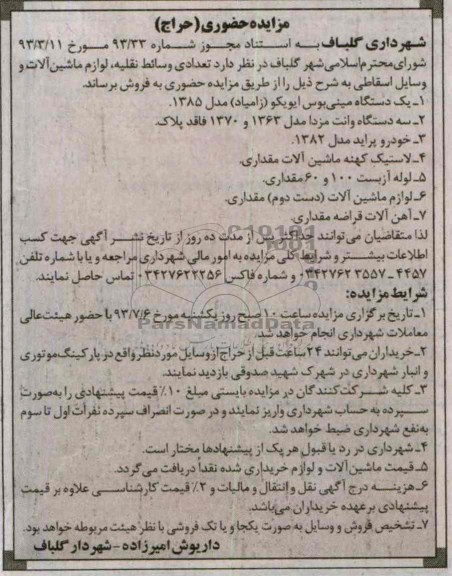 مزایده حضوری (حراج)
شهرداری گلباف به استناد مجوز شماره ۹۳/۳۳ مورخ ۹۳/۳/۱۱
شورای محترم اسلامی شهر گلباف در نظر دارد تعدادی وسائط نقلیه، لوازم ماشین آلات و
وسایل اسقاطی به شرح ذیل را از طریق مزایده حضوری به فروش برساند.
۱ـ یک دستگاه مینی‌بوس ایویکو (زامیاد) مدل ۱۳۸۵.
۲ـ سه دستگاه وانت مزدا مدل ۱۳۶۳ و ۱۳۷۰ فاقد پلاک.
۳ـ خودرو پراید مدل ۱۳۸۲.
۴ـ لاستیک کهنه ماشین آلات مقداری.
۵ـ لوله آزبست ۱۰۰ و ۶۰ مقداری.
۶ـ لوازم ماشین آلات (دست دوم) مقداری.
۷ـ آهن آلات قراضه مقداری.
لذا متقاضیان می‌توانند حداکثر پس از مدت ده روز از تاریخ نشر آگهی جهت کسب
اطلاعات بیشتر و شرایط کلی مزایده به امور مالی شهرداری مراجعه و یا با شماره تلفن
۴۴۵۷ـ ۳۵۵۷ ۰۳۴۲۷۶۲ و شماره فاکس ۰۳۴۲۷۶۲۲۲۵۶ تماس حاصل نمایند.
شرایط مزایده:
۱ـ تاریخ برگزاری مزایده ساعت ۱۰ صبح روز یکشنبه مورخ ۹۳/۷/۶ با حضور هیئت عالی
معاملات شهرداری انجام خواهد شد.
۲ـ خریداران می‌توانند ۲۴ ساعت قبل از حراج از وسایل مورد نظر واقع در پارکینگ موتوری
و انبار شهرداری در شهرک شهید صدوقی بازدید نمایند.
۳ـ کلیه شرکت‌کنندگان در مزایده بایستی مبلغ ۱۰٪ قیمت پیشنهادی را به‌صورت
سپرده به حساب شهرداری واریز نمایند و در صورت انصراف سپرده نفرات اول تا سوم
به‌نفع شهرداری ضبط خواهد شد.
۴ـ شهرداری در رد یا قبول هر یک از پیشنهادها مختار است.
۵ـ قیمت ماشین آلات و لوازم خریداری شده نقداً دریافت می‌گردد.
۶ـ هزینه درج آگهی نقل و انتقال و مالیات و ۲٪ قیمت کارشناسی علاوه بر قیمت
پیشنهادی بر عهده خریداران می‌باشد.
۷ـ تشخیص فروش و وسایل به صورت یکجا و یا تک فروشی با نظر هیئت مربوطه خواهد بود.
داریوش امیرزاده – شهردار گلباف
ParsNamadData